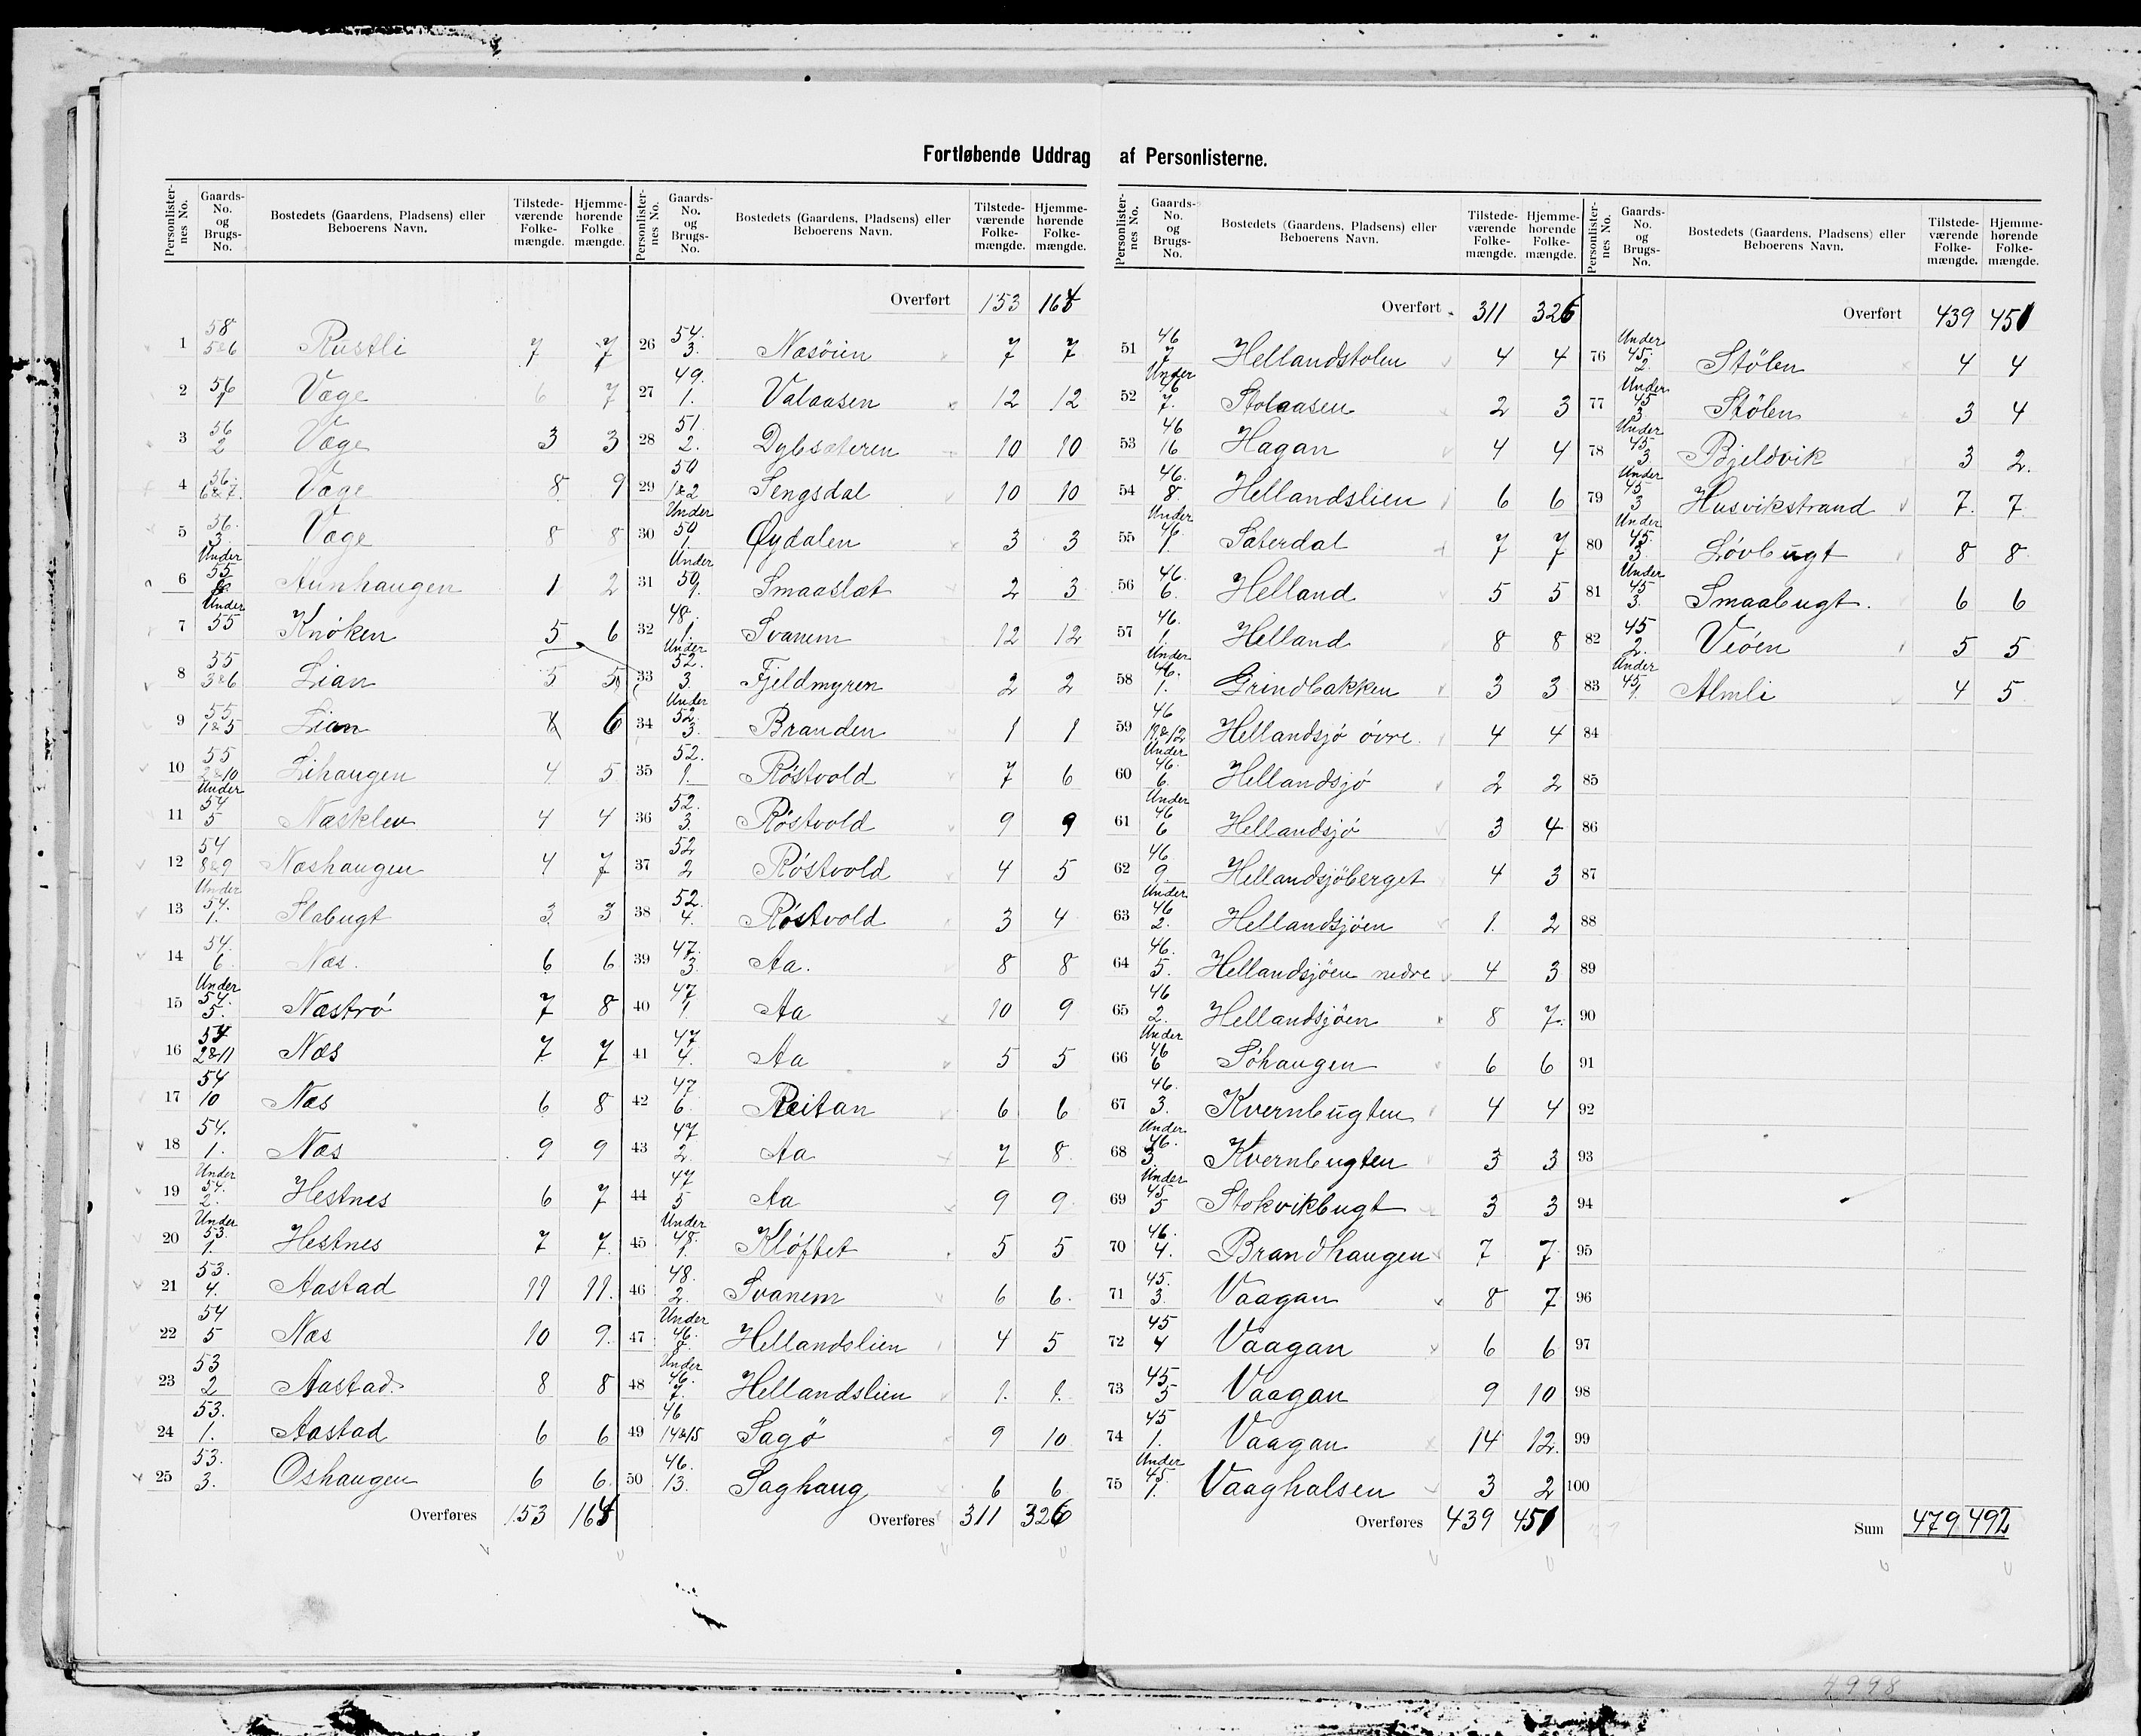 Fortløbende Uddrag af Personlisterne.
Personlisternes No. | Gaards-No. og Brugs-No. | Bostedets (Gaardens, Pladsens) eller Beboerens Navn. | Tilstedeværende Folkemængde. | Hjemmehørende Folkemængde.
1 58 5&6 Rustli 7 7
2 56 1 Væge 6 7
3 56 2 Væge 3 3
4 56. 6&7. Væge 8 9
5 56. 3. Væge 8 8
6 Under 55 Aunhaugen 1 2
7 Under 55 Knöken 5 6
8 55 3&6 Lian 5 5
9 55 1&5 Lian 6
10 55 2&10 Lihaugen 4 5
11 Under 54 5 Næsklev 4 4
12 54 8&9 Næshaugen 4 7
13 Under 54. 1. Slabugt 3 3
14 54. 6 Næs. 6 6
15 Under 54. 5. Næströ 7 8
16 54 2&11 Næs 7 7
17 54 10 Næs 6 8
18 54. 1. Næs 9 9
19 Under 54. 2. Hestnes 6 7
20 Under 53. 1. Hestnes 7 7
21 53. 4. Aastad 11 11.
22 54 5 Næs 10 9.
23 53 2 Aastad 8 8
24 53. 1. Aastad 6 6
25 53. 3. Oshaugen 6 6
Overføres 153 164
Overført 153 164
26 54. 3. Næsöien 7 7
27 49. 1. Valaasen 12 12
28 51. 2. Dybsæteren 10 10
29 50 1&2 Sengsdal 10 10
30 Under 50 1. Öydalen 3 3
31 Under 50 1. Smaaslæt 2 3
32 48. 1. Svanem 12 12
33 Under 52. 3 Fjeldmyren 2 2
34 Under 52. 3. Branden 1 1
35 52. 1. Röstvold 7 6
36 52. 3. Röstvold 9 9
37 52 2 Röstvold 4 5
38 52. 4. Röstvold 3 4
39 47. 3. Aa. 8 8
40 47 1. Aa 10 9
41 47 4. Aa 5 5
42 47 6. Reitan 6 6
43 47 2. Aa 7 8
44 47 5 Aa 9 9
45 Under 48. 1. Klöftet 5 5
46 48. 2. Svanem 6 6.
47 Under 46. 8. Hellandslien 4 5
48 Under 46. 7. Hellandslien 1. 1.
49 46 14&15 Sagö 9 10
50 46. 13. Saghaug 6 6
Overføres 311 326
Overført 311 326
51 46 7 Hellandstolen 4 4
52 Under 46 7. Stolaasen 2 3
53 46 16 Hagan 4 4
54 46. 8. Hellandslien 6 6
55 Under 46. 1. Sæterdal 7 7
56 46. 6. Helland 5 5
57 46. 1. Helland 8 8
58 Under 46. 1. Grindbakken 3 3
59 46 &12 Hellandsjö övre. 4 4
60 Under 46. 6. Hellandsjö 2 2
61 Under 46 6 Hellandsjö 3 4
62 46 9. Hellandsjöberget 4 3
63 Under 46 2. Hellandsjöen 1. 2
64 46. 5. Hellandsjöen nedre 4 3
65 46 2. Hellandsjöen 8 7.
66 Under 46 6 Söhaugen 6 6
67 46. 3. Kvernbugten 4 4
68 Under 46. 3. Kvernbugten 3 3
69 Under 45 5 Stokvikbugt 3 3
70 46. 4. Brandhaugen 7 7
71 45. 3. Vaagan 8 7
72 45 4 Vaagan 6 6
73 45. 5 Vaagan 9 10
74 45 1. Vaagan 14 12.
75 Under 45. 1. Vaaghalsen 3 2
Overføres 439 451
Overført 439 451
76 Under 45. 2. Stölen 4 4
77 Under 45 3. Stölen 3 4
78 Under 45. 3 Bjeldvik 3 2.
79 Under 45 3 Husvikstrand 7. 7.
80 Under 45. 3. Lövbugt 8 8.
81 Under 45 3. Smaabugt. 6 6
82 45 2. Veöen 5 5
83 Under 45. 1. Almli 4 5
84
85
86
87
88
89
90
91
92
93
94
95
96
97
98
99
100
Sum 479 492
4998